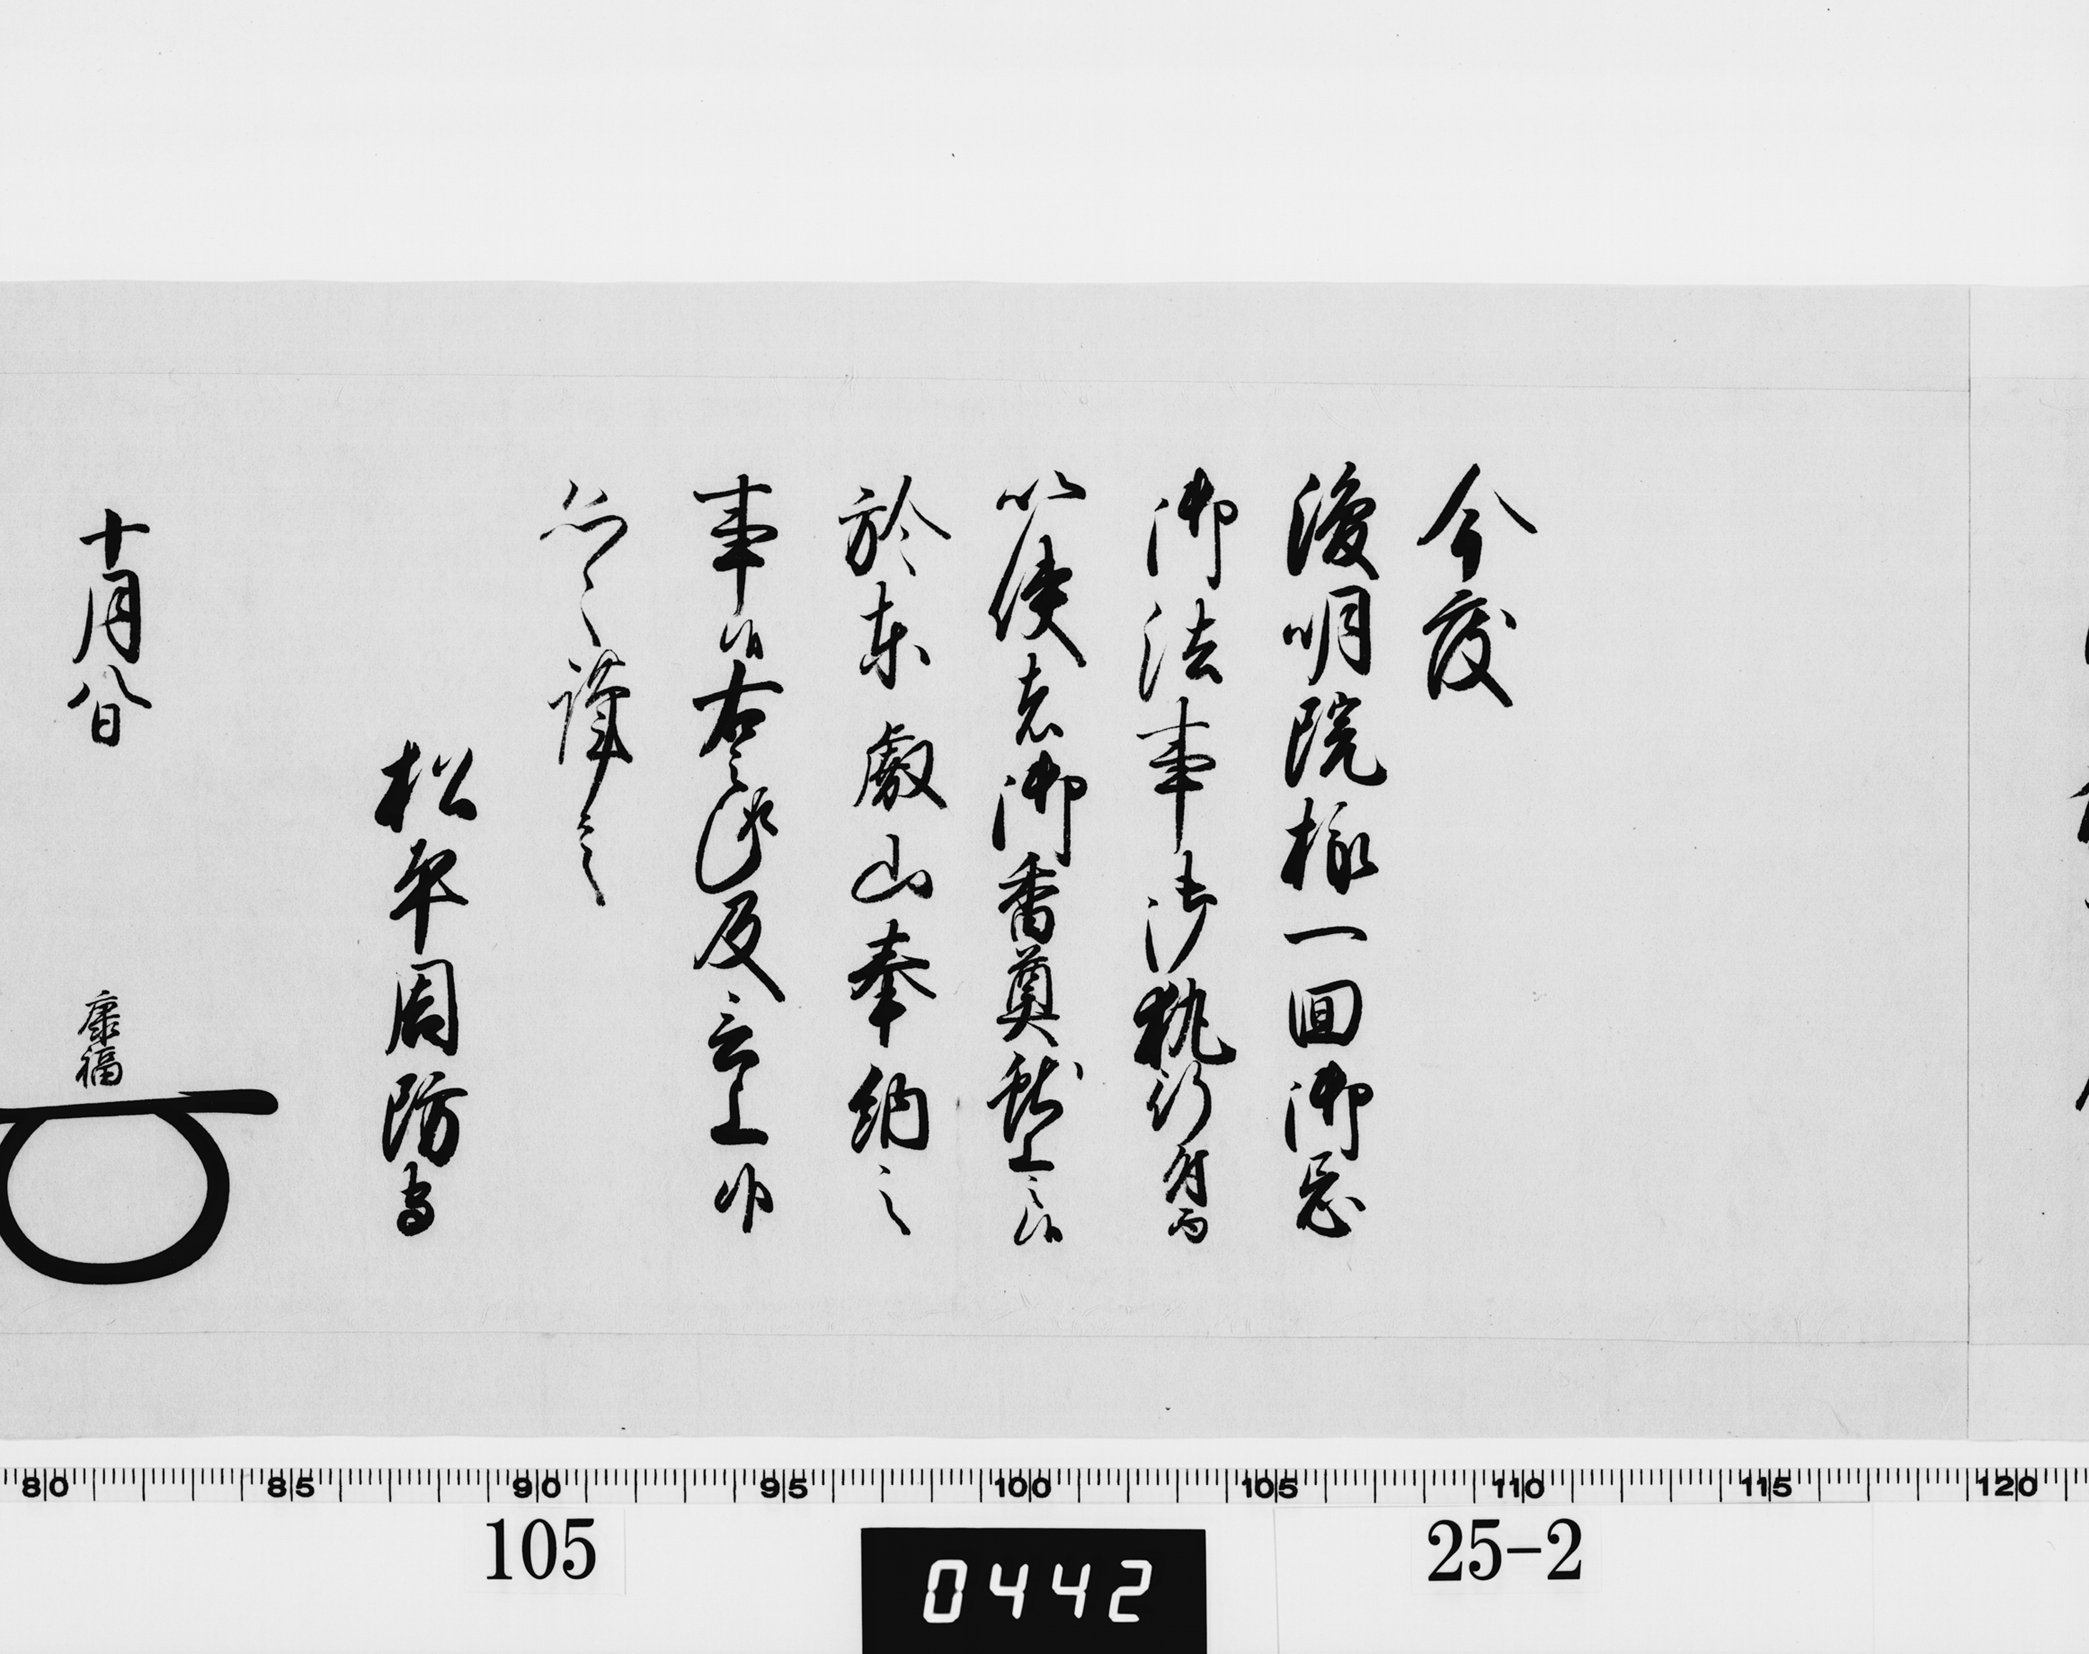 今度
浚明院様一回御忌
御法事御執行付而
以使者御香奠献上之候
於東叡山奉納之
事候右之趣及言上候
恐々謹言
松平周防守
十月八日
康福
80 85 90 95 100 105 110 115 120
105
0442
25-2